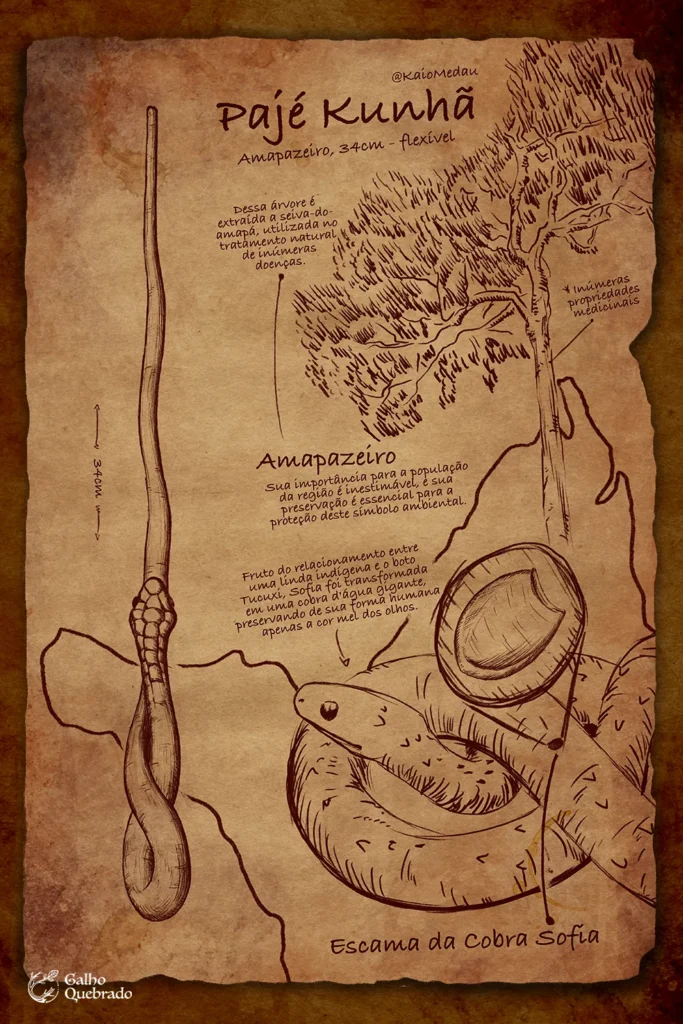 @KaioMedau
Pajé Kunhã
Amapazeiro, 34cm - flexível
Dessa árvore é
extraída a seiva-do-
amapá, utilizada no
tratamento natural
de inúmeras
doenças.
* Inúmeras
propriedades
medicinais
34cm
Amapazeiro
Sua importância para a população
da região é inestimável, e sua
preservação é essencial para a
proteção deste símbolo ambiental.
Fruto do relacionamento entre
uma linda indígena e o boto
Tucuxi, Sofia foi transformada
em uma cobra d'água gigante,
preservando de sua forma humana
apenas a cor mel dos olhos.
Escama da Cobra Sofia
Galho
Quebrado